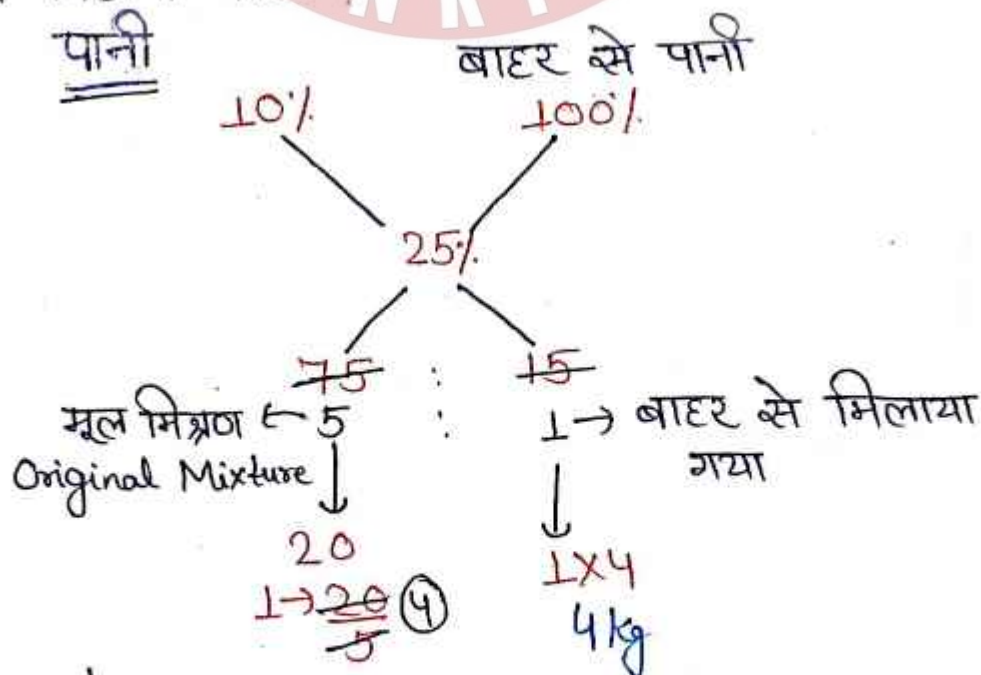 पानी बाहर से पानी
10% 100%
25%
75 : 15
मूल मिश्रण ← 5 : 1 → बाहर से मिलाया
Original Mixture गया
20 1×4
1→20/5 4 4 kg